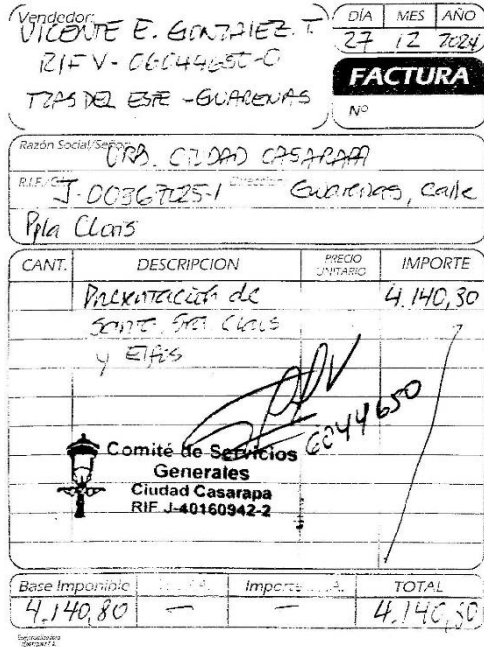 Vendedor:
VICENTE E. GONZALEZ. T
RIF V-06044650-0
TZAS DEL ESTE - GUARENAS
DÍA MES AÑO
27 12 2024
FACTURA
Nº
Razón Social/Señor:
URB. CIUDAD CASARAPA
R.I.F./C.I.: J-00367025-1 Dirección Guarenas, calle
Ppla Clois
CANT. DESCRIPCION PRECIO UNITARIO IMPORTE
Presentación de 4.140,30
Santa, Sra Claus
y Elfos
6044650
Comité de Servicios
Generales
Ciudad Casarapa
RIF J-40160942-2
Base Imponible Importe I.V.A. TOTAL
4.140,80 — — 4.140,80